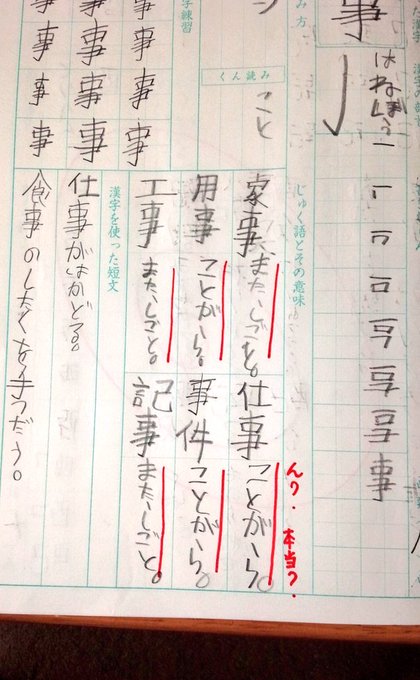 事
み方
くん読み
こと
字練習
事事事事
事事事事
事事事事
じゅく語とその意味
家事 また、しごと。
仕事 ことがら。
ん?.本当?.
用事 ことがら。
事件 ことがら。
工事 また、しごと。
記事 また、しごと。
漢字を使った短文
仕事がはかどる。
食事のしたくを手つだう。